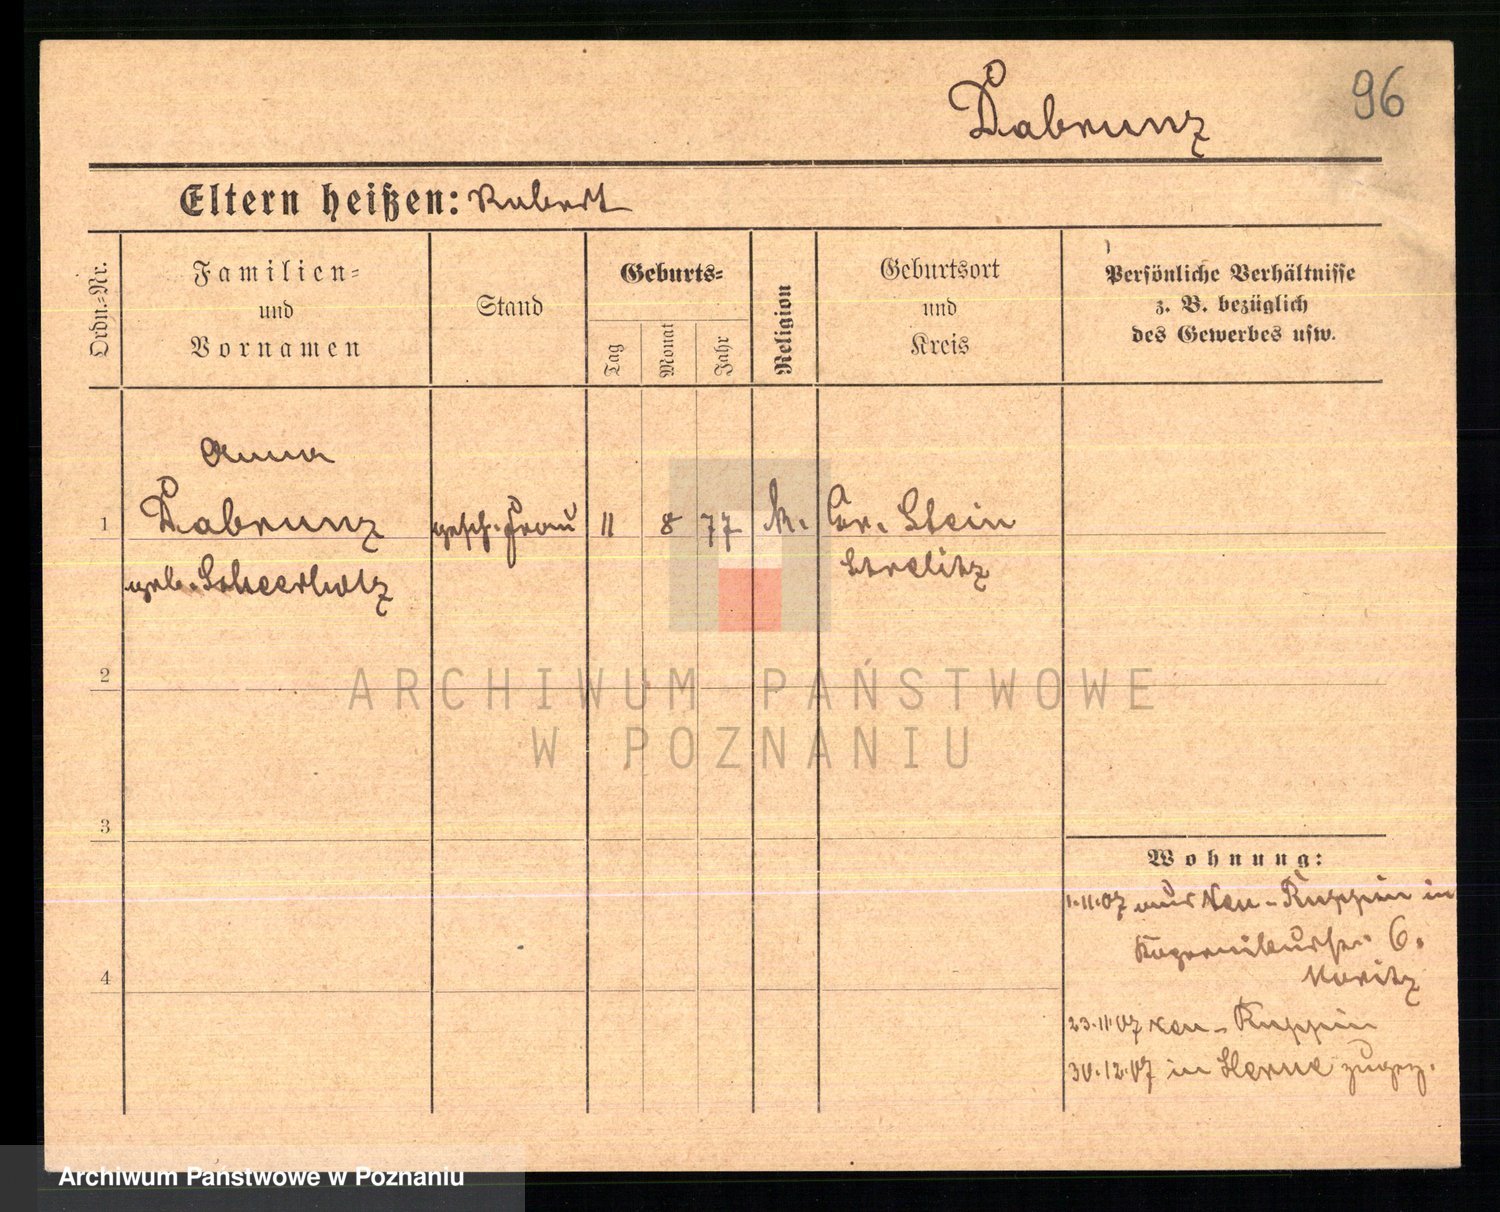 96
Dabrunz
Eltern heißen: Robert
Ordn.-Nr.
Familien-
und
Vornamen
Stand
Geburts-
Tag
Monat
Jahr
Religion
Geburtsort
und
Kreis
Persönliche Verhältnisse
z. B. bezüglich
des Gewerbes usw.
Anna
1 Dabrunz gesch. Frau 11 8 77 k. Gr. Stein
geb. Scheerholz Strelitz
2
3
4
Wohnung:
1.11.07 aus Neu-Ruppin in
6.
Moritz
23.11.07 Neu-Ruppin
30.12.07 in Herne zugez.
ARCHIWUM PAŃSTWOWE
W POZNANIU
Archiwum Państwowe w Poznaniu